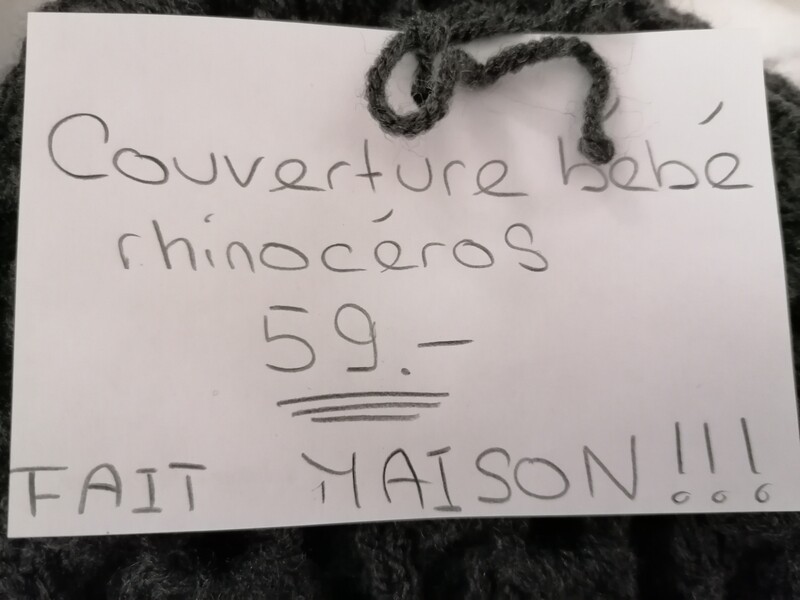 Couverture bébé
rhinocéros
59.-
FAIT MAISON!!!